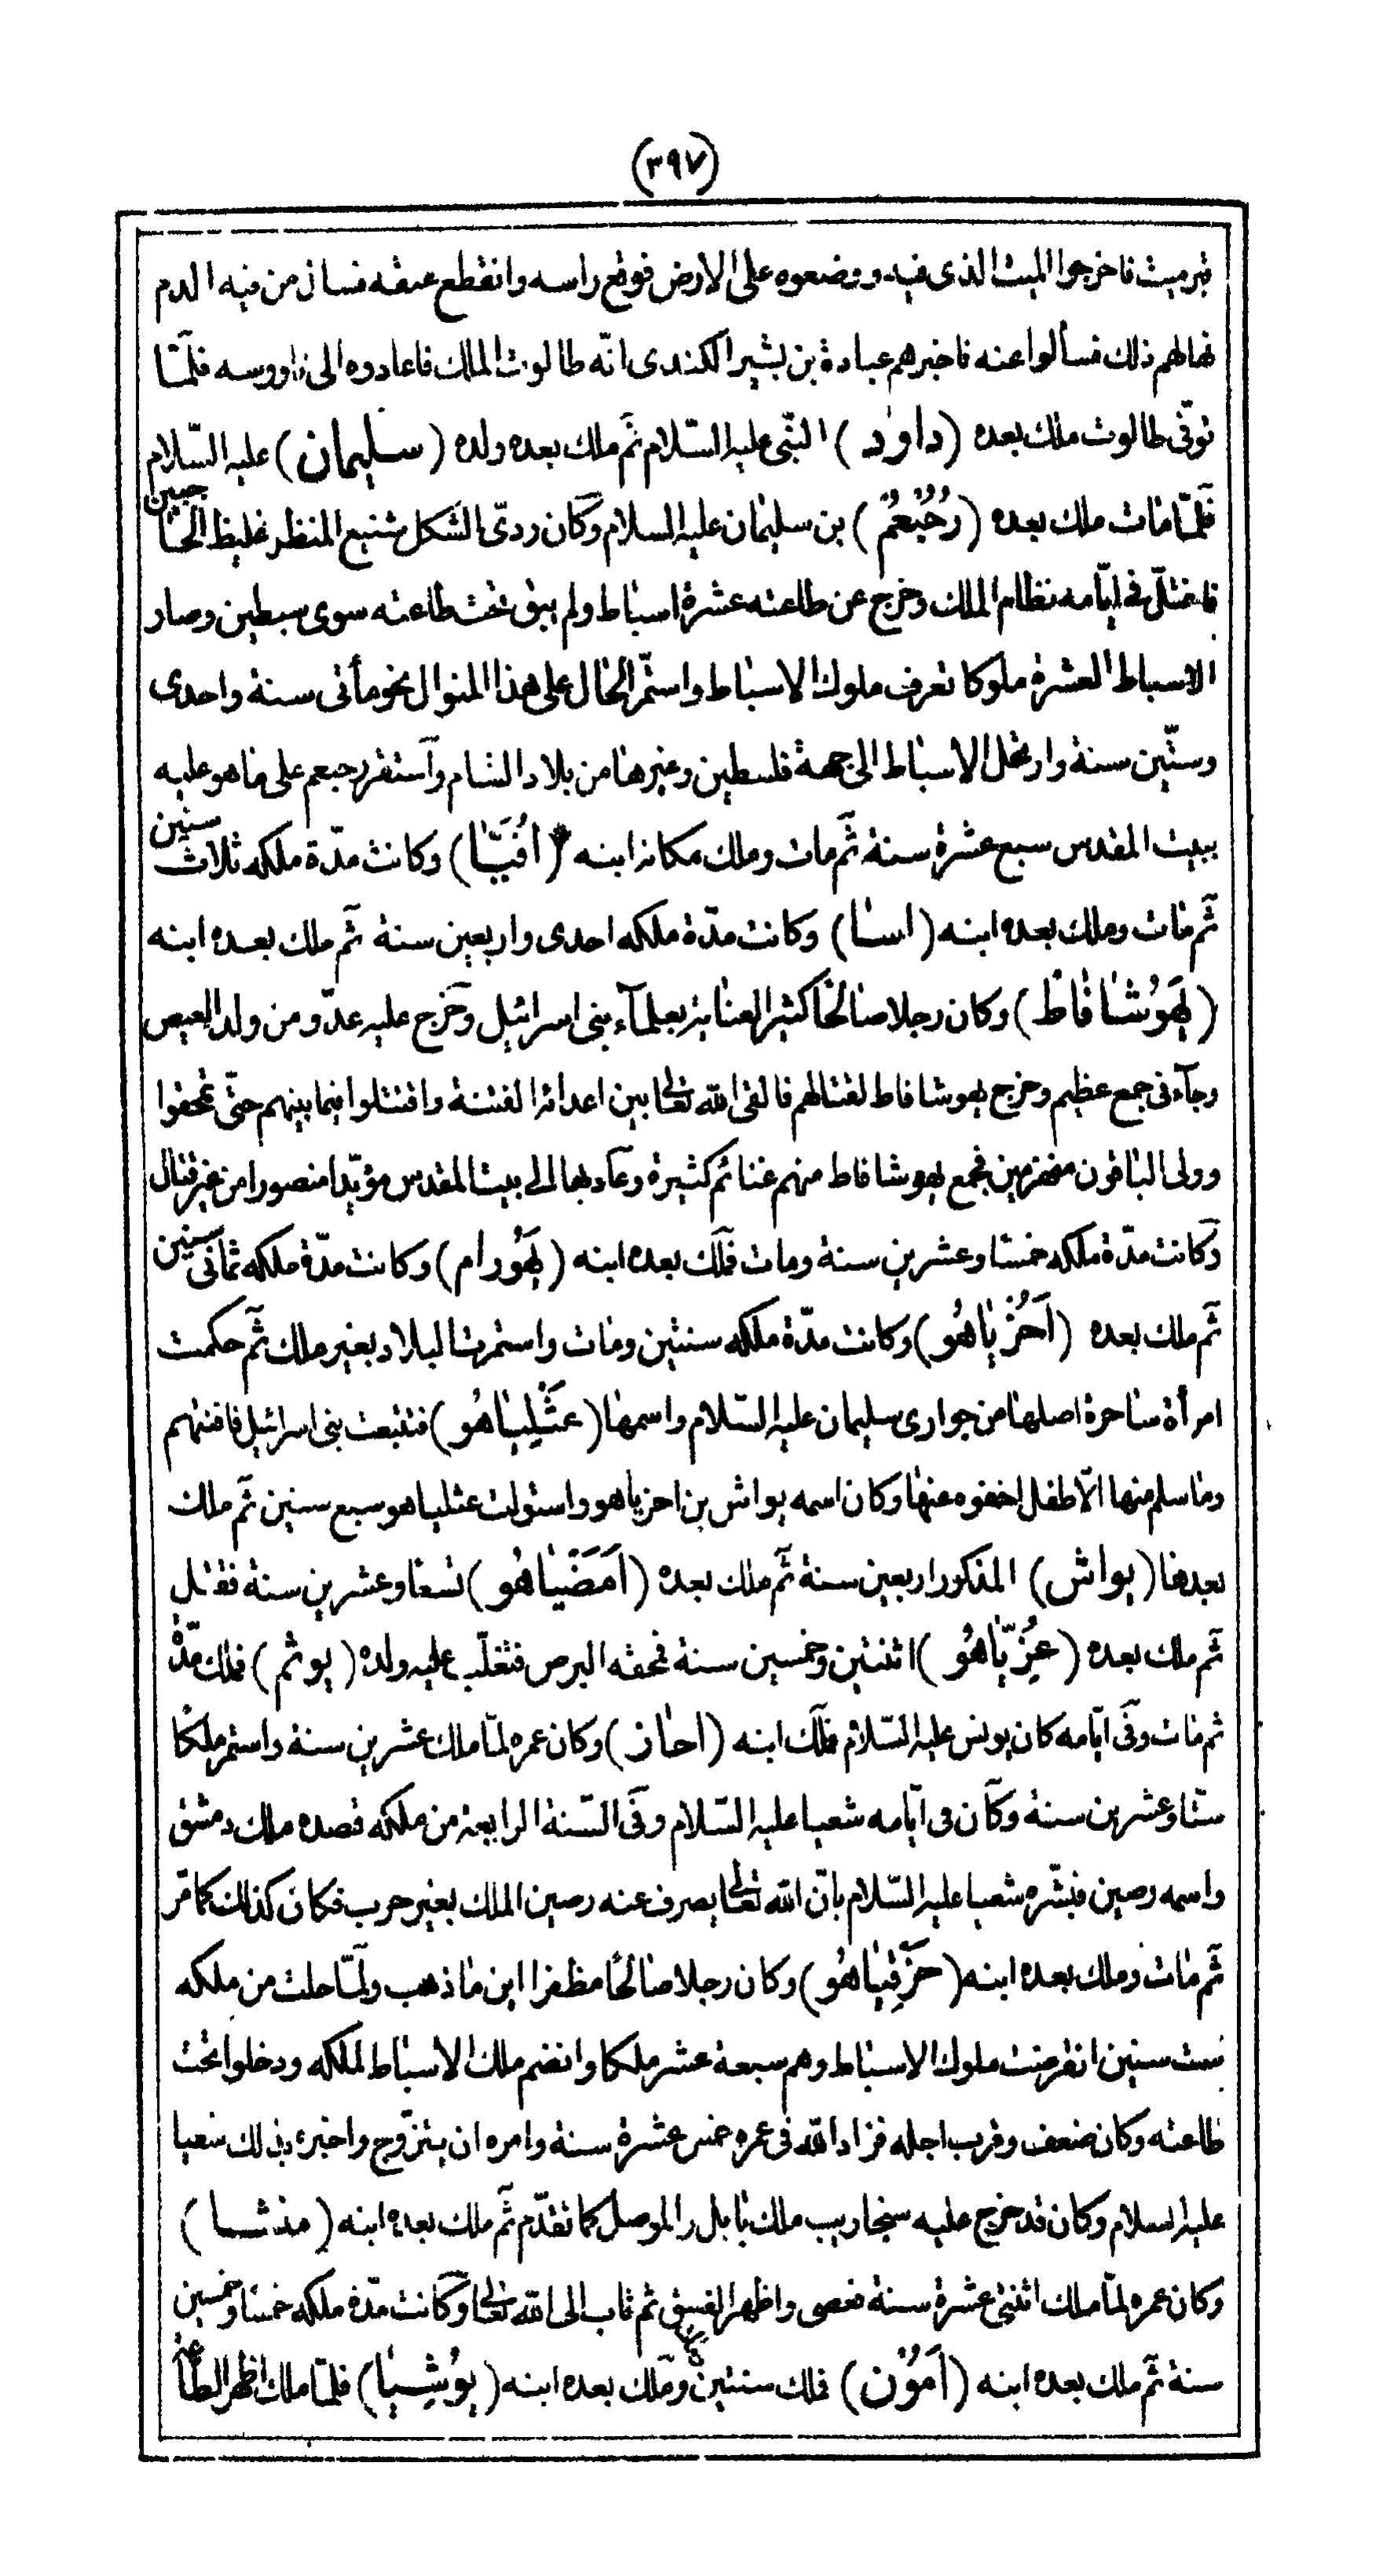 (٣٩٧)
قبر ميت فاخرجوا الميت الذى فيه ووضعوه على الارض فوقع راسه وانقطع عنقه فسال من فيه الدم
فهالهم ذلك فسألوا عنه فاخبرهم عبادة بن بشير الكندى انّه طالوت الملك فاعادوه الى ناووسه فلمّا
توفّى طالوت ملك بعده (داود) النّبى عليه السّلام ثم ملك بعده ولده (سليمان) عليه السّلام
فلمّا مات ملك بعده (رُحُبْعُمْ) بن سليمان عليه السلام وكان ردىّ الشكل شنيع المنظر غليظ الحاجبين
فاختلّ فى ايّامه نظام الملك وخرج عن طاعته عشرة اسباط ولم يبق تحت طاعته سوى سبطين وصار
الاسباط العشرة ملوكا تعرف ملوك الاسباط واستمّر الحال على هذا المنوال نحو مأتى سنة واحدى
وستّين سنة وارتحل الاسباط الى جهة فلسطين وغيرها من بلاد الشام واستقر رحبعم على ما هو عليه
ببيت المقدس سبع عشرة سنة ثم مات وملك مكانه ابنه (افيّا) وكانت مدّة ملكه ثلاث سنين
ثم مات وملك بعده ابنه (اسا) وكانت مدّة ملكه احدى واربعين سنة ثم ملك بعده ابنه
(يهَوُشافاط) وكان رجلا صالحا كثير العناية بعلمآء بنى اسرائيل وخرج عليه عدّو من ولد العيص
وجآء فى جمع عظيم وخرج يهوشافاط لقتالهم فالقى الله تعالى بين اعدائه الفتنة واقتتلوا فيما بينهم حتّى تمحقوا
وولى الباقون منهزمين فجمع يهوشافاط منهم غنائم كثيرة وعاد بها الى بيت المقدس مؤيّدا منصورا من غير قتال
وكانت مدّة ملكه خمسا وعشرين سنة ومات فملك بعده ابنه (يهَوُرام) وكانت مدّة ملكه ثمانى سنين
ثم ملك بعده (اَحُزْياهُو) وكانت مدّة ملكه سنتين ومات واستمرت البلاد بغير ملك ثم حكمت
امرأة ساحرة اصلها من جوارى سليمان عليه السّلام واسمها (عَثْلِياهُو) فتتبعت بنى اسرائيل فافنتهم
وما سلم منها الّا طفل اخفوه عنها وكان اسمه يواش بن احزياهو واستولت عثلياهو سبع سنين ثم ملك
بعدها (يواش) المذكور اربعين سنة ثم ملك بعده (اَمَضْياهُو) تسعا وعشرين سنة فقتل
ثم ملك بعده (عُزِّيّاهُو) اثنتين وخمسين سنة فحقه البرص فتغلّب عليه ولده (يوثم) فملك مدّة
ثم مات وفى ايّامه كان يونس عليه السّلام فملك ابنه (احاز) وكان عمره لمّا ملك عشرين سنة واستمر ملكا
ستّا وعشرين سنة وكان فى ايّامه شعيا عليه السّلام وفى السّنة الرابعة من ملكه قصده ملك دمشق
واسمه رصين فبشّره شعيا عليه السّلام بانّ الله تعالى يصرف عنه رصين الملك بغير حرب فكان كذلك كما مّر
ثم مات وملك بعده ابنه (حَزَقِياهُو) وكان رجلا صالحا مظفرا اين ما ذهب ولمّا حلت من ملكه
ست سنين انقرضت ملوك الاسباط وهم سبعة عشر ملكا وانضم ملك الاسباط لملكه ودخلوا تحت
طاعته وكان ضعف وقرب اجله فزاد الله فى عمره خمس عشرة سنة وامره ان يتزّوج واخبره بذلك شعيا
عليه السلام وكان قد خرج عليه سنجاريب ملك بابل والموصل كما تقدّم ثم ملك بعده ابنه (منشا)
وكان عمره لمّا ملك اثنتى عشرة سنة فعصى واظهر الفسق ثم تاب الى الله تعالى وكانت مدّة ملكه خمسا وخمسين
سنة ثم ملك بعده ابنه (اَمُوُن) فملك سنتين وملك بعده ابنه (يوُشِيا) فلمّا ملك اظهر الطاعة